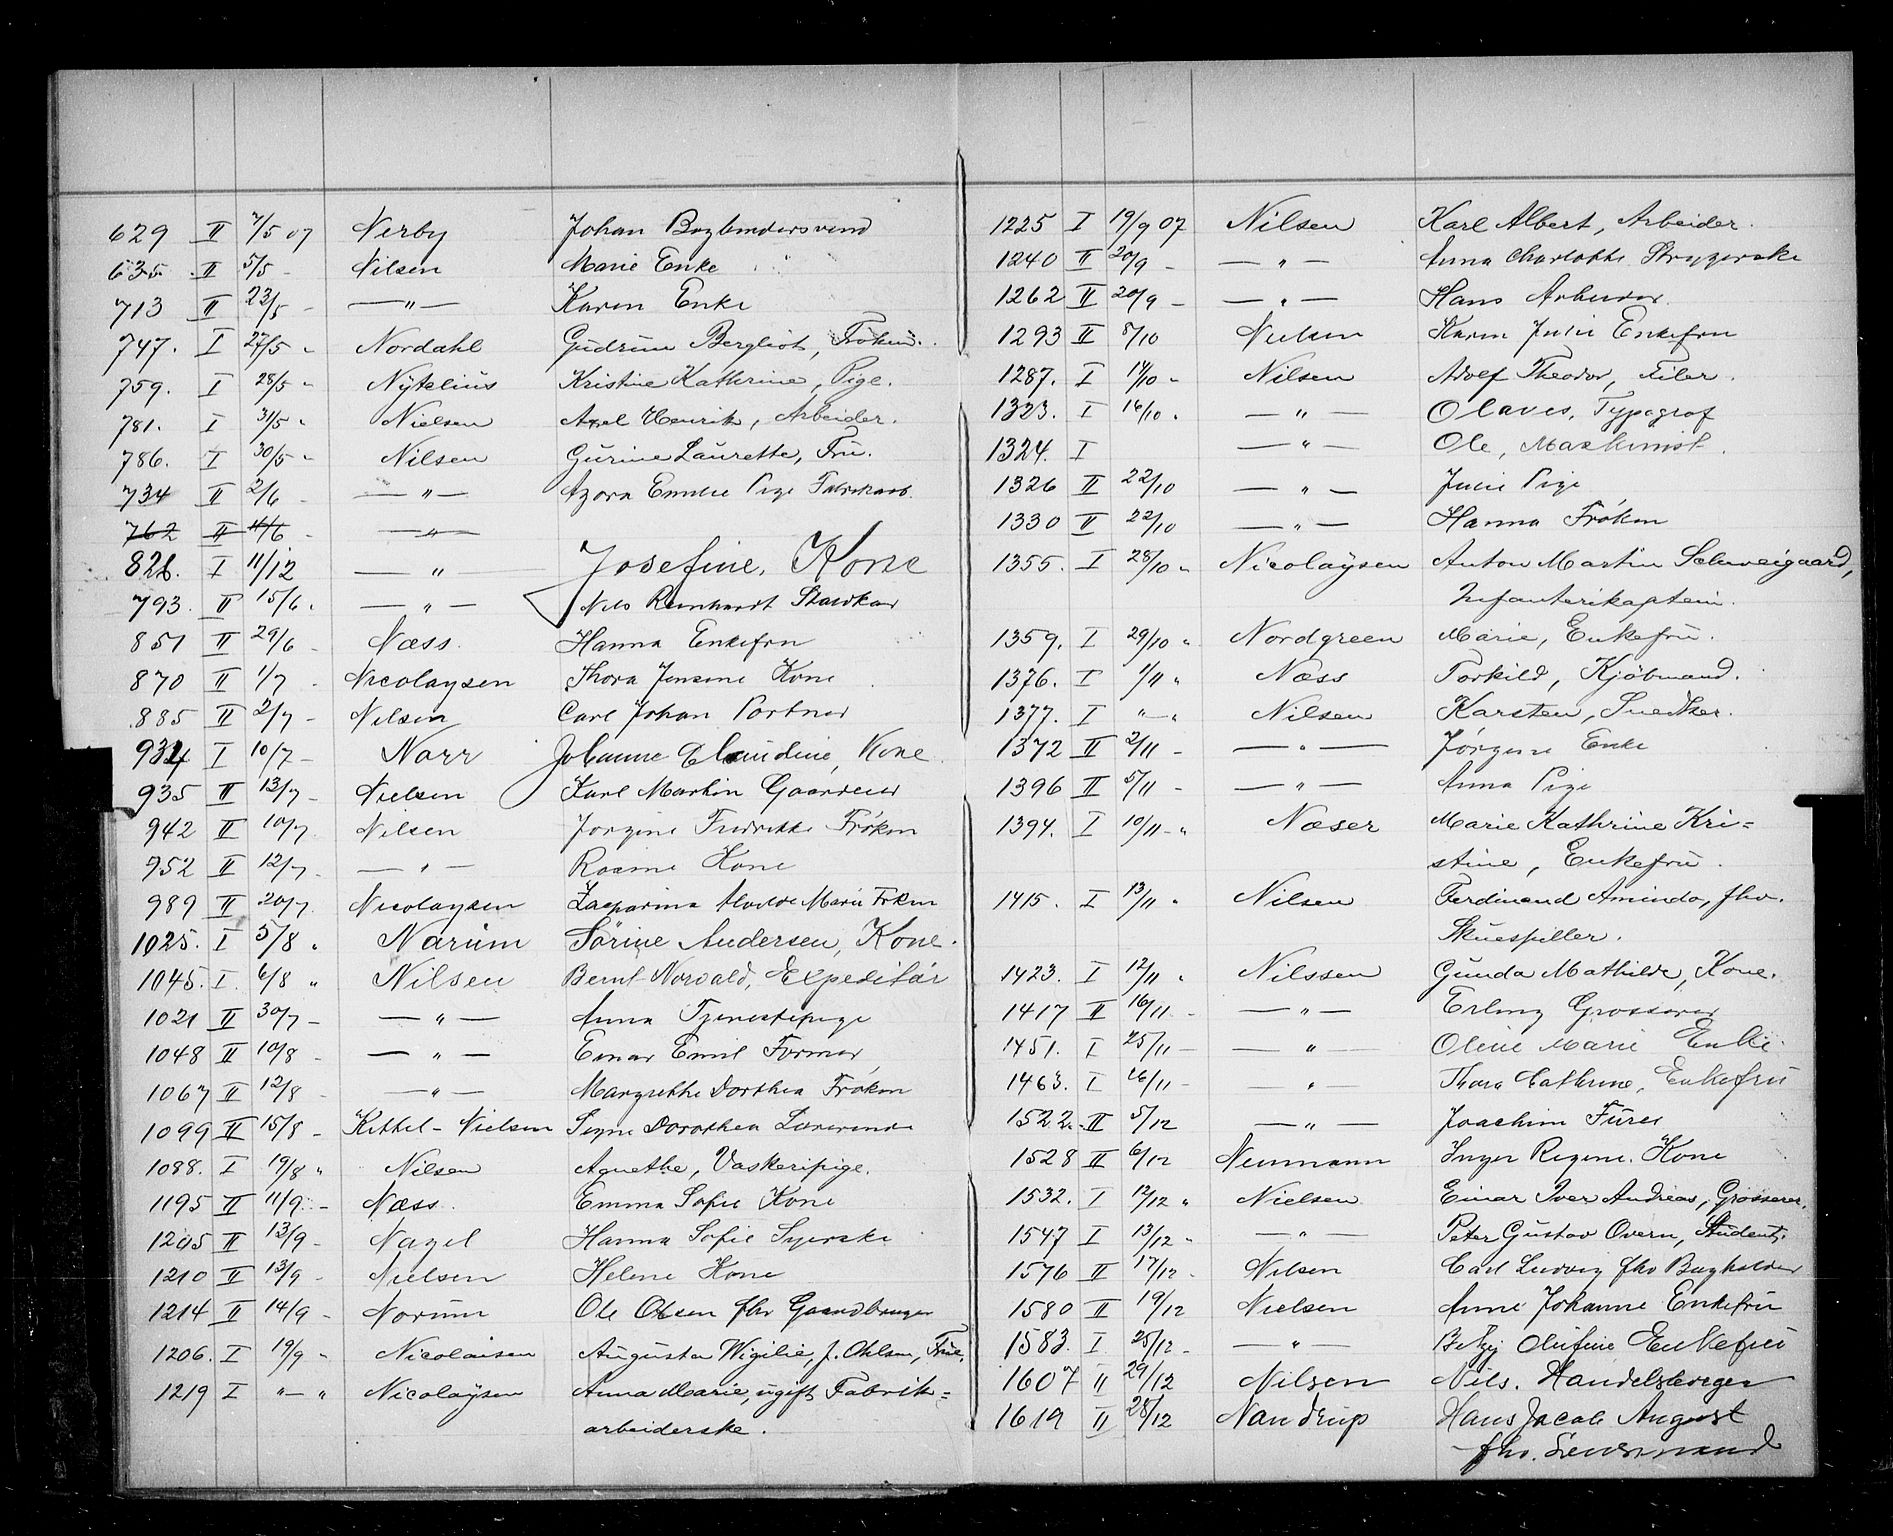 629 II 7/5 07 Nerby Johan Bogbindersvend
635 II 5/5 - Nilsen Marie Enke
713 II 23/5 - —"— Karen Enke
747. I 27/5 " Nordahl Gudrun Bergliot, Frøken.
759. I 28/5 " Nytelius Kristine Kathrine, Pige.
781. I 31/5 " Nielsen Axel Henrik, Arbeider.
786. I 30/5 " Nilsen Gurine Laurette, Fru.
734 II 2/6 —"— Azora Emilie Pige Fabrikarb.
762 II 11/6 - —"—
828. I 11/12 —"— Josefine, Kone
793. II 15/6. —"— Nils Reinhardt Staldkar
851 II 29/6 - Næss. Hanna Enkefru
870 II 1/7 - Nicolaysen Thora Jensine Kone
885 II 2/7 - Nilsen Carl Johan Portner
934 I 10/7 - Narr Johanne Claudine, Kone.
935 II 13/7 - Nielsen Karl Martin Gaardeier
942 II 10/7 Nilsen Jørgine Fredrikke Frøken
952 II 12/7 - —"— Rosine Kone
989 II 20/7 Nicolaysen Zaparina Alvilde Marie Frkn
1025. I 5/8 " Narum Sörine Andersen, Kone.
1045. I 6/8 " Nilsen Bernt Norvald, Expeditör
1021 II 30/7 - —"— Anna Tjenestepige
1048 II 10/8 - —"— Einar Emil Former
1067 II 12/8 - —"— Margrethe Dorthea Frøken
1099 II 15/8 - Kittel - Nielsen Signe Dorothea Lærerinde
1088. I 19/8 " Nilsen Agnethe, Vaskeripige.
1195 II 11/9 - Næss. Emma Sofie Kone
1205 II 13/9 - Nagel Hanna Sofie Syerske
1210 II 13/9 - Nielsen Helene Kone
1214 II 14/9 - Norum Ole Olsen fhv Gaardbruger
1206. I 19/9 - Nicolaisen Augusta Wigilie, f. Ohlsen, Frue.
1219 I "-" Nicolaysen Anna Marie, ugift Fabrik=
arbeiderske.
1225 I 19/9 07 Nilsen Karl Albert, Arbeider.
1240 II 20/9 - —"— Anna Charlotte Strygerske
1262 II 20/9 - —"— Hans Arbeider.
1293 II 8/10 Nielsen Karen Julie Enkefru
1287. I 14/10 " Nilsen Adolf Theodor, Filer.
1323. I 16/10 " —"— Olaves, Typograf
1324. I —"— Ole, Maskinist.
1326 II 22/10 —"— Julie Pige
1330 II 22/10 —"— Hanna Frøken
1355. I 28/10 " Nicolaysen Anton Martin Schweigaard,
Infanterikaptein.
1359. I 29/10 " Nordgreen Marie, Enkefru.
1376. I 1/11 " Næss Torkild, Kjöbmand.
1377. I "-" Nilsen Karsten, Snedker.
1372 II 2/11 - —"— Jørgine Enke
1396 II 5/11 - —"— Anna Pige
1394. I 10/11 - " Næser Marie Kathrine Kri=
stine, Enkefru.
1415. I 13/11 " Nilsen Ferdinand Aminda, fhv.
Skuespiller.
1423. I 12/11 " Nilssen Gunda Mathilde, Kone.
1417 II 16/11 - —"— Erling Grosserer
1451. I 25/11 - —"— Oline Marie Enke
1463. I 26/11 - —"— Thora Cathrine, Enkefru
1522. II 5/12 —"— Joachim Furer
1528 II 6/12 Neumann Inger Regine. Kone
1532. I 12/12 " Nielsen Einar Iver Andreas, Grosserer.
1547 I 13/12 " —"— Peter Gustav Overn, Student.
1576 II 17/12 - Nilsen Carl Ludvig fhv Bogholder
1580 II 19/12 Nielsen Anne Johanne Enkefru
1583. I 25/12 - —"— Betzy Olufine Enkefru
1607 II 29/12 Nilsen Nils. Handelsborger
1619 II 28/12 Nandrup Hans Jacob August
fhv. Lensmand